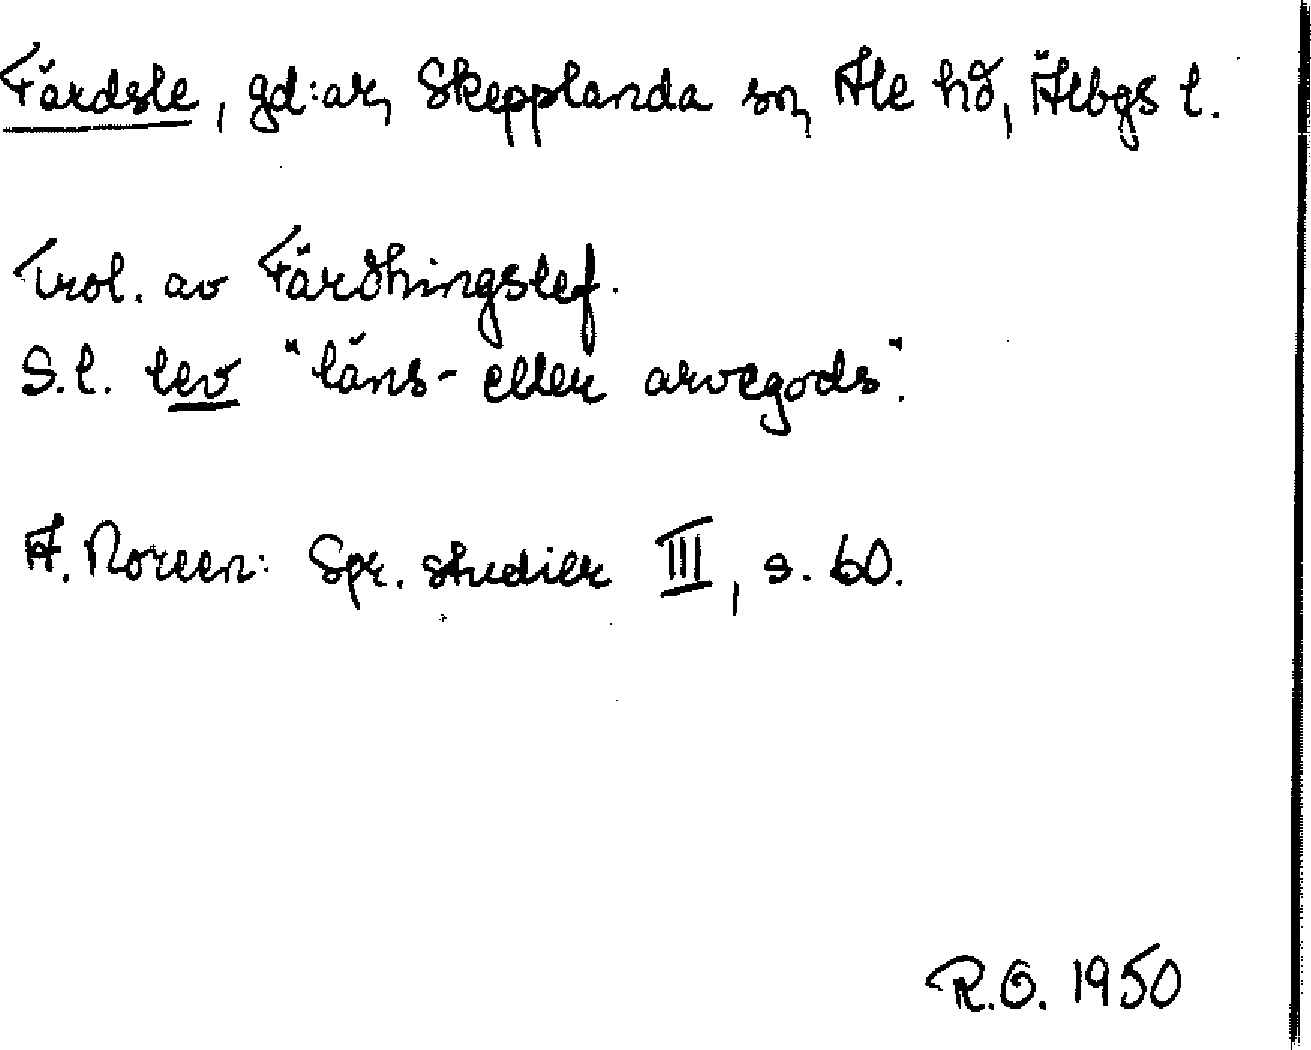 Färdsle, gd:ar, Skepplanda sn, Ale hd, Älbgs l.
Trol. av Färdhingslef.
S.l. lev "läns- eller arvegods".
A. Noreen: Spr. studier III, s. 60.
R.O. 1950